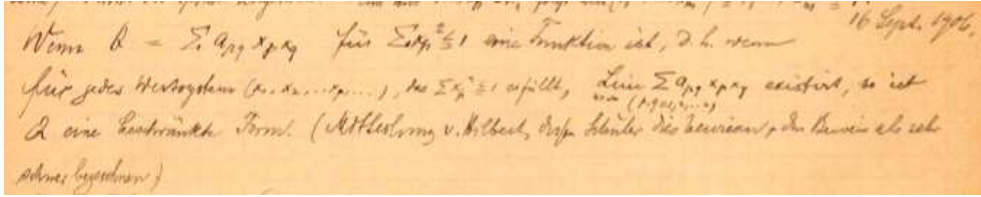 16 Sept. 1906.
Wenn Q = Σ a_pq x_p x_q für Σ x_p² ≤ 1 eine Funktion ist, d. h. wenn
für jedes Wertsystem (x₁, x₂, ... x_p, ...), das Σ x_p² ≤ 1 erfüllt, Lim_{n=∞} Σ a_pq x_p x_q (p,q=1,2,...n) existirt, so ist
Q eine beschränkte Form. (Mittheilung v. Hilbert, dessen Schüler dies bewiesen, den Beweis als sehr
schwer bezeichnen)